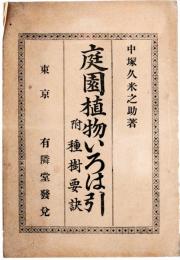 中塚久米之助著
庭園植物いろは引
附 種樹要訣
東京 有隣堂發兌